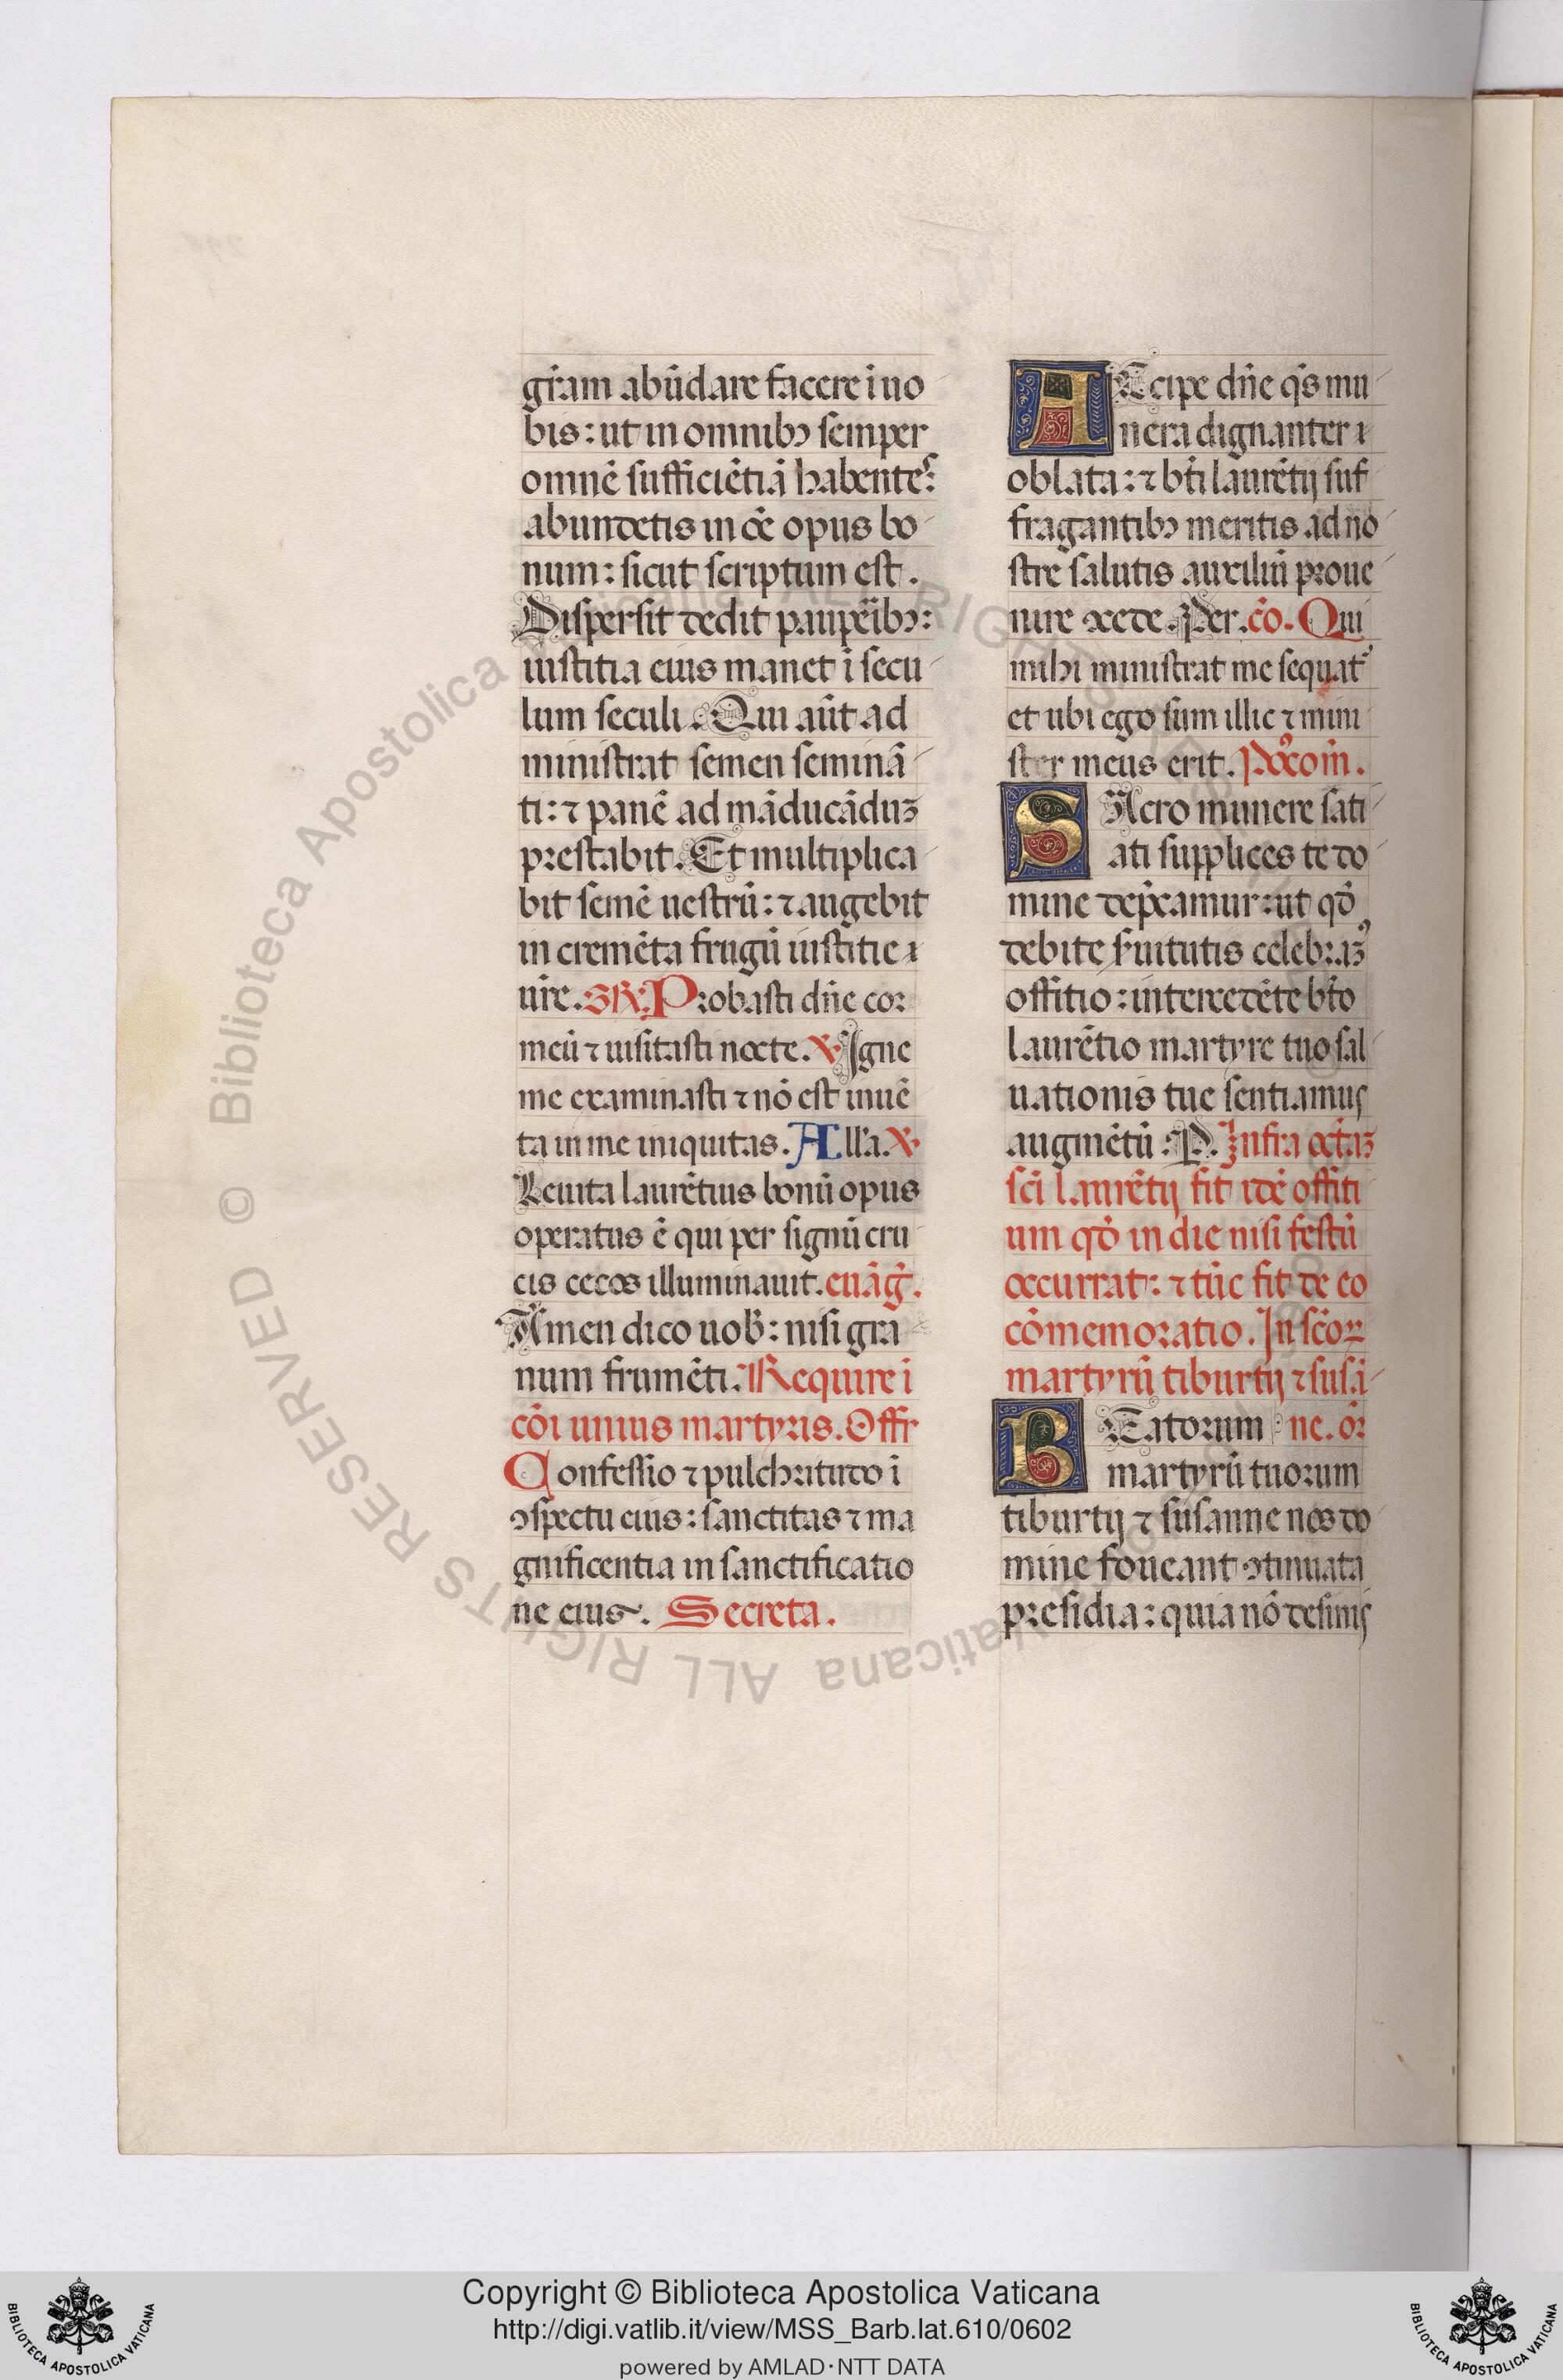 gr̃am abũdare facere ĩ uo
bis: ut in omnibꝫ semper
omnẽ sufficiẽtiã habentes:
abundetis in oẽ opus bo
num: sicut scriptum est.
Dispersit dedit paupẽibꝫ:
iustitia eius manet ĩ secu
lum seculi. Qui aũt ad
ministrat semen seminã
ti: ⁊ panẽ ad mãducãduꝫ
prestabit. Et multiplica
bit semẽ uestrũ: ⁊ augebit
in cremẽta frugũ iustitie
ur̃e. GR̃. Probasti dñe cor
meũ ⁊ uisitasti nocte. ℣ Igne
me examinasti ⁊ nõ est inuẽ
ta in me iniquitas. All'a. ℣
Leuita laurẽtius bonũ opus
operatus ẽ qui per signũ cru
cis cecos illuminauit. euãg̃.
Amen dico uob̃: nisi gra
num frumẽti. Require ĩ
cõi unius martyris. Offr
Confessio ⁊ pulchritudo ĩ
ꝯspectu eius: sanctitas ⁊ ma
gnificentia in sanctificatio
ne eius. Secreta.
ACcipe dñe q̃s mu
nera dignanter
oblata: ⁊ bt̃i laurẽtij suf
fragantibꝫ meritis ad no
stre salutis auxiliũ proue
nire ꝯcede. Per. cõ. Qui
mihi ministrat me sequat᷑
et ubi ego sum illic ⁊ mini
ster meus erit. P̃ꝯcom̃.
SAcro munere sati
ati supplices te do
mine dep̃camur: ut qd̃
debite s̃uitutis celebraꝫ
offitio: intercedẽte bt̃o
laurẽtio martyre tuo sal
uationis tue sentiamus
augmẽtũ. P. Infra octãꝫ
sc̃i laurẽtij fit idẽ offiti
um qd̃ in die nisi festũ
occurrat: ⁊ tũc fit de eo
cõmemoratio. In sc̃oꝝ
martyrũ tiburtij ⁊ susã
BEatorum ne. or̃
martyrũ tuorum
tiburtij ⁊ susanne nos do
mine foueant ꝯtinuata
presidia: quia nõ desinis
Copyright © Biblioteca Apostolica Vaticana
http://digi.vatlib.it/view/MSS_Barb.lat.610/0602
powered by AMLAD·NTT DATA
BIBLIOTECA APOSTOLICA VATICANA
BIBLIOTECA APOSTOLICA VATICANA
© Biblioteca Apostolica Vaticana ALL RIGHTS RESERVED